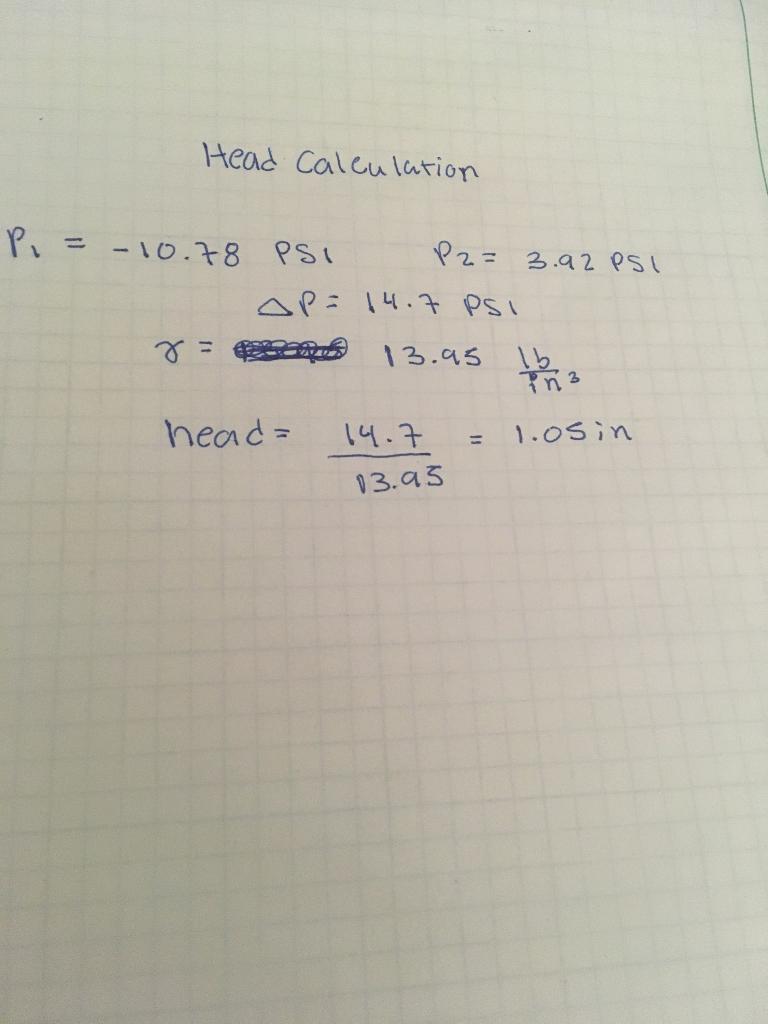 Head Calculation
P₁ = -10.78 PSI P2 = 3.92 PSI
ΔP = 14.7 PSI
γ = 13.95 lb/in³
head = 14.7/13.95 = 1.05in